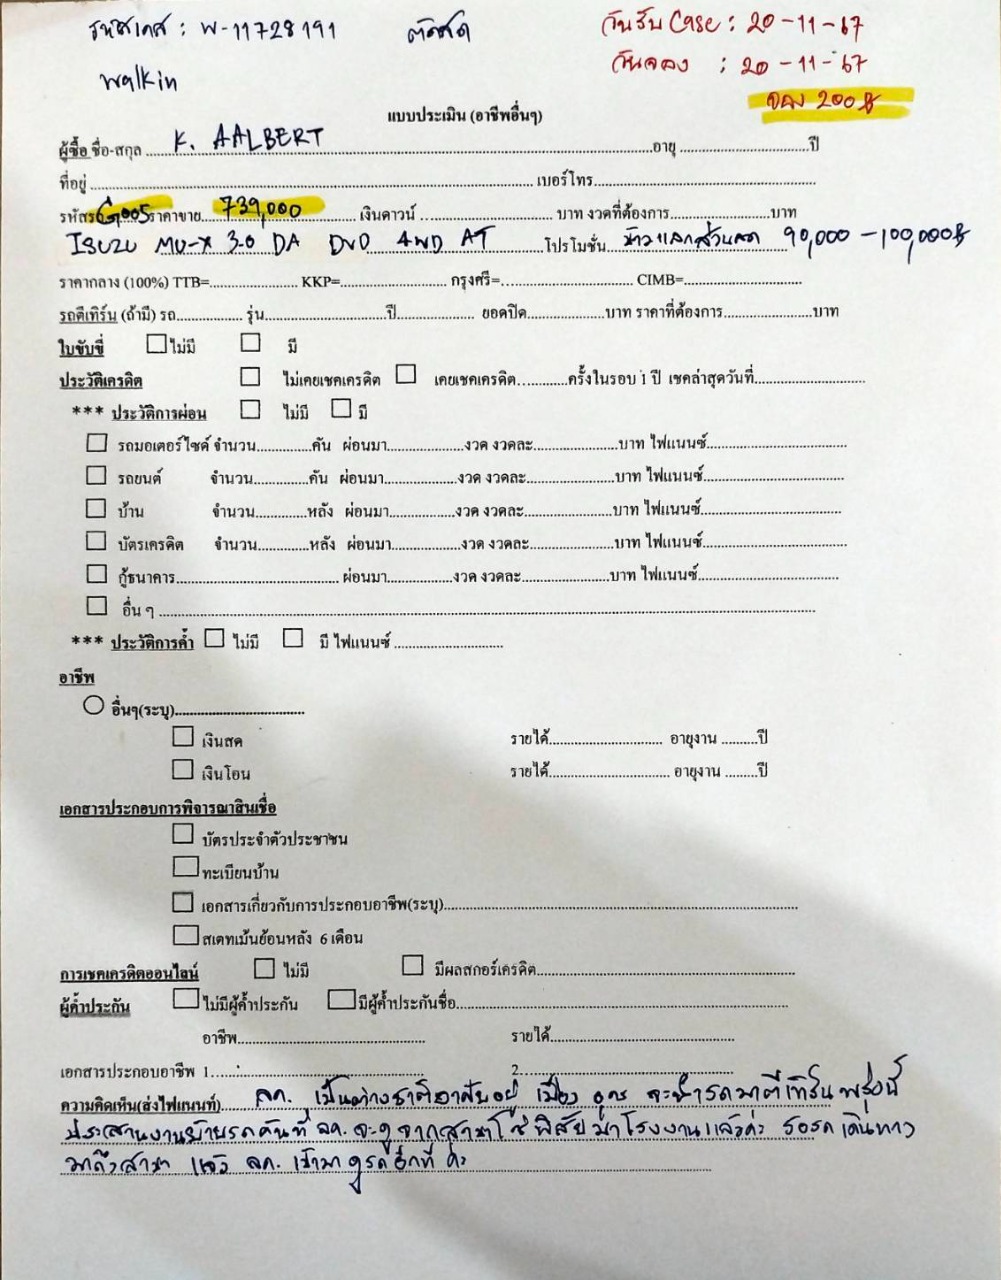 รหัสเคส : W-11728191 ตัดสด วันรับ Case : 20-11-67
walkin วันจอง : 20-11-67
จอง 200฿
แบบประเมิน (อาชีพอื่นๆ)
ผู้ซื้อ ชื่อ-สกุล K. AALBERT อายุ ปี
ที่อยู่ เบอร์โทร
รหัสรถ G005 ราคาขาย 739,000 เงินดาวน์ บาท งวดที่ต้องการ บาท
ISUZU MU-X 3.0 DA DVD 4WD AT โปรโมชั่น ข้าวแลกส่วนลด 90,000 - 100,000฿
ราคากลาง (100%) TTB= KKP= กรุงศรี= CIMB=
รถตีเทิร์น (ถ้ามี) รถ รุ่น ปี ยอดปิด บาท ราคาที่ต้องการ บาท
ใบขับขี่ ไม่มี มี
ประวัติเครดิต ไม่เคยเชคเครดิต เคยเชคเครดิต ครั้งในรอบ 1 ปี เชคล่าสุดวันที่
*** ประวัติการผ่อน ไม่มี มี
รถมอเตอร์ไซด์ จำนวน คัน ผ่อนมา งวด งวดละ บาท ไฟแนนซ์
รถยนต์ จำนวน คัน ผ่อนมา งวด งวดละ บาท ไฟแนนซ์
บ้าน จำนวน หลัง ผ่อนมา งวด งวดละ บาท ไฟแนนซ์
บัตรเครดิต จำนวน หลัง ผ่อนมา งวด งวดละ บาท ไฟแนนซ์
กู้ธนาคาร ผ่อนมา งวด งวดละ บาท ไฟแนนซ์
อื่น ๆ
*** ประวัติการค้ำ ไม่มี มี ไฟแนนซ์
อาชีพ
อื่นๆ(ระบุ)
เงินสด รายได้ อายุงาน ปี
เงินโอน รายได้ อายุงาน ปี
เอกสารประกอบการพิจารณาสินเชื่อ
บัตรประจำตัวประชาชน
ทะเบียนบ้าน
เอกสารเกี่ยวกับการประกอบอาชีพ(ระบุ)
สเตทเม้นย้อนหลัง 6 เดือน
การเชคเครดิตออนไลน์ ไม่มี มีผลสกอร์เครดิต
ผู้ค้ำประกัน ไม่มีผู้ค้ำประกัน มีผู้ค้ำประกันชื่อ
อาชีพ รายได้
เอกสารประกอบอาชีพ 1. 2.
ความคิดเห็น(ส่งไฟแนนท์) ลค. เป็นต่างชาติอาศัยอยู่ เมือง อุดร จะนำรถมาตีเทิร์น พรุ่งนี้
ประสานงานย้ายรถคันที่ ลค. จะดู จากสาขาโชว์พิสัย มาโรงงานแล้วค่ะ รอรถเดินทาง
มาถึงสาขา แล้ว ลค. เข้ามาดูรถอีกที ค่ะ